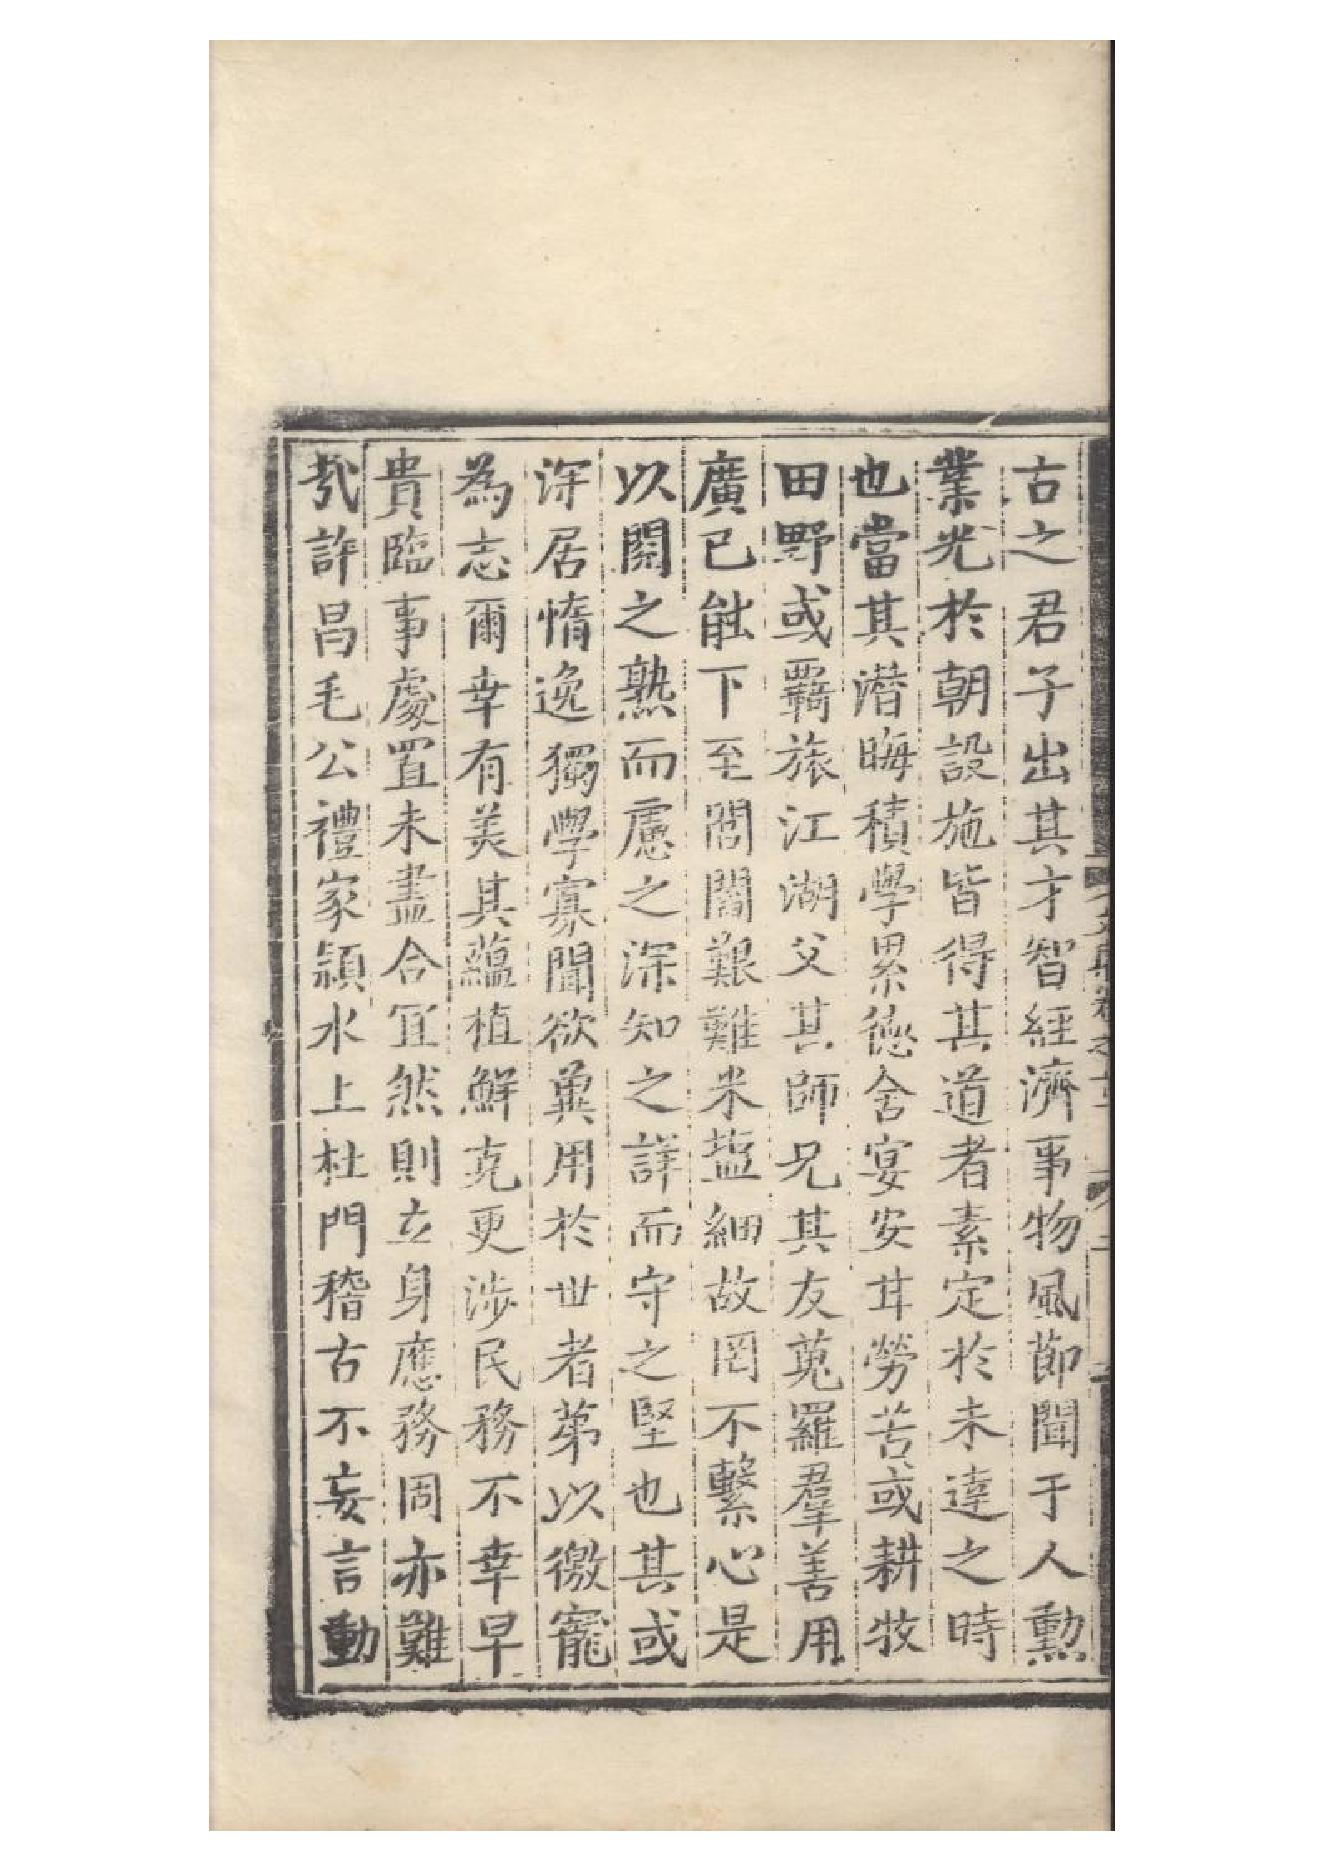 古之君子出其才智經濟事物風節聞于人勲
業光於朝設施皆得其道者素定於未達之時
也當其潛晦積學累徳舍宴安甘勞苦或耕牧
田野或覊旅江湖父其師兄其友蒐羅羣善用
廣已能下至閭閻艱難米塩細故罔不繫心是
以閱之熟而慮之深知之詳而守之堅也其或
深居惰逸獨學寡聞欲兾用於世者苐以徼寵
為志爾幸有美其蘊植鮮克更涉民務不幸早
貴臨事處置未盡合冝然則立身應務固亦難
㢤許昌毛公禮家頴水上杜門稽古不妄言動